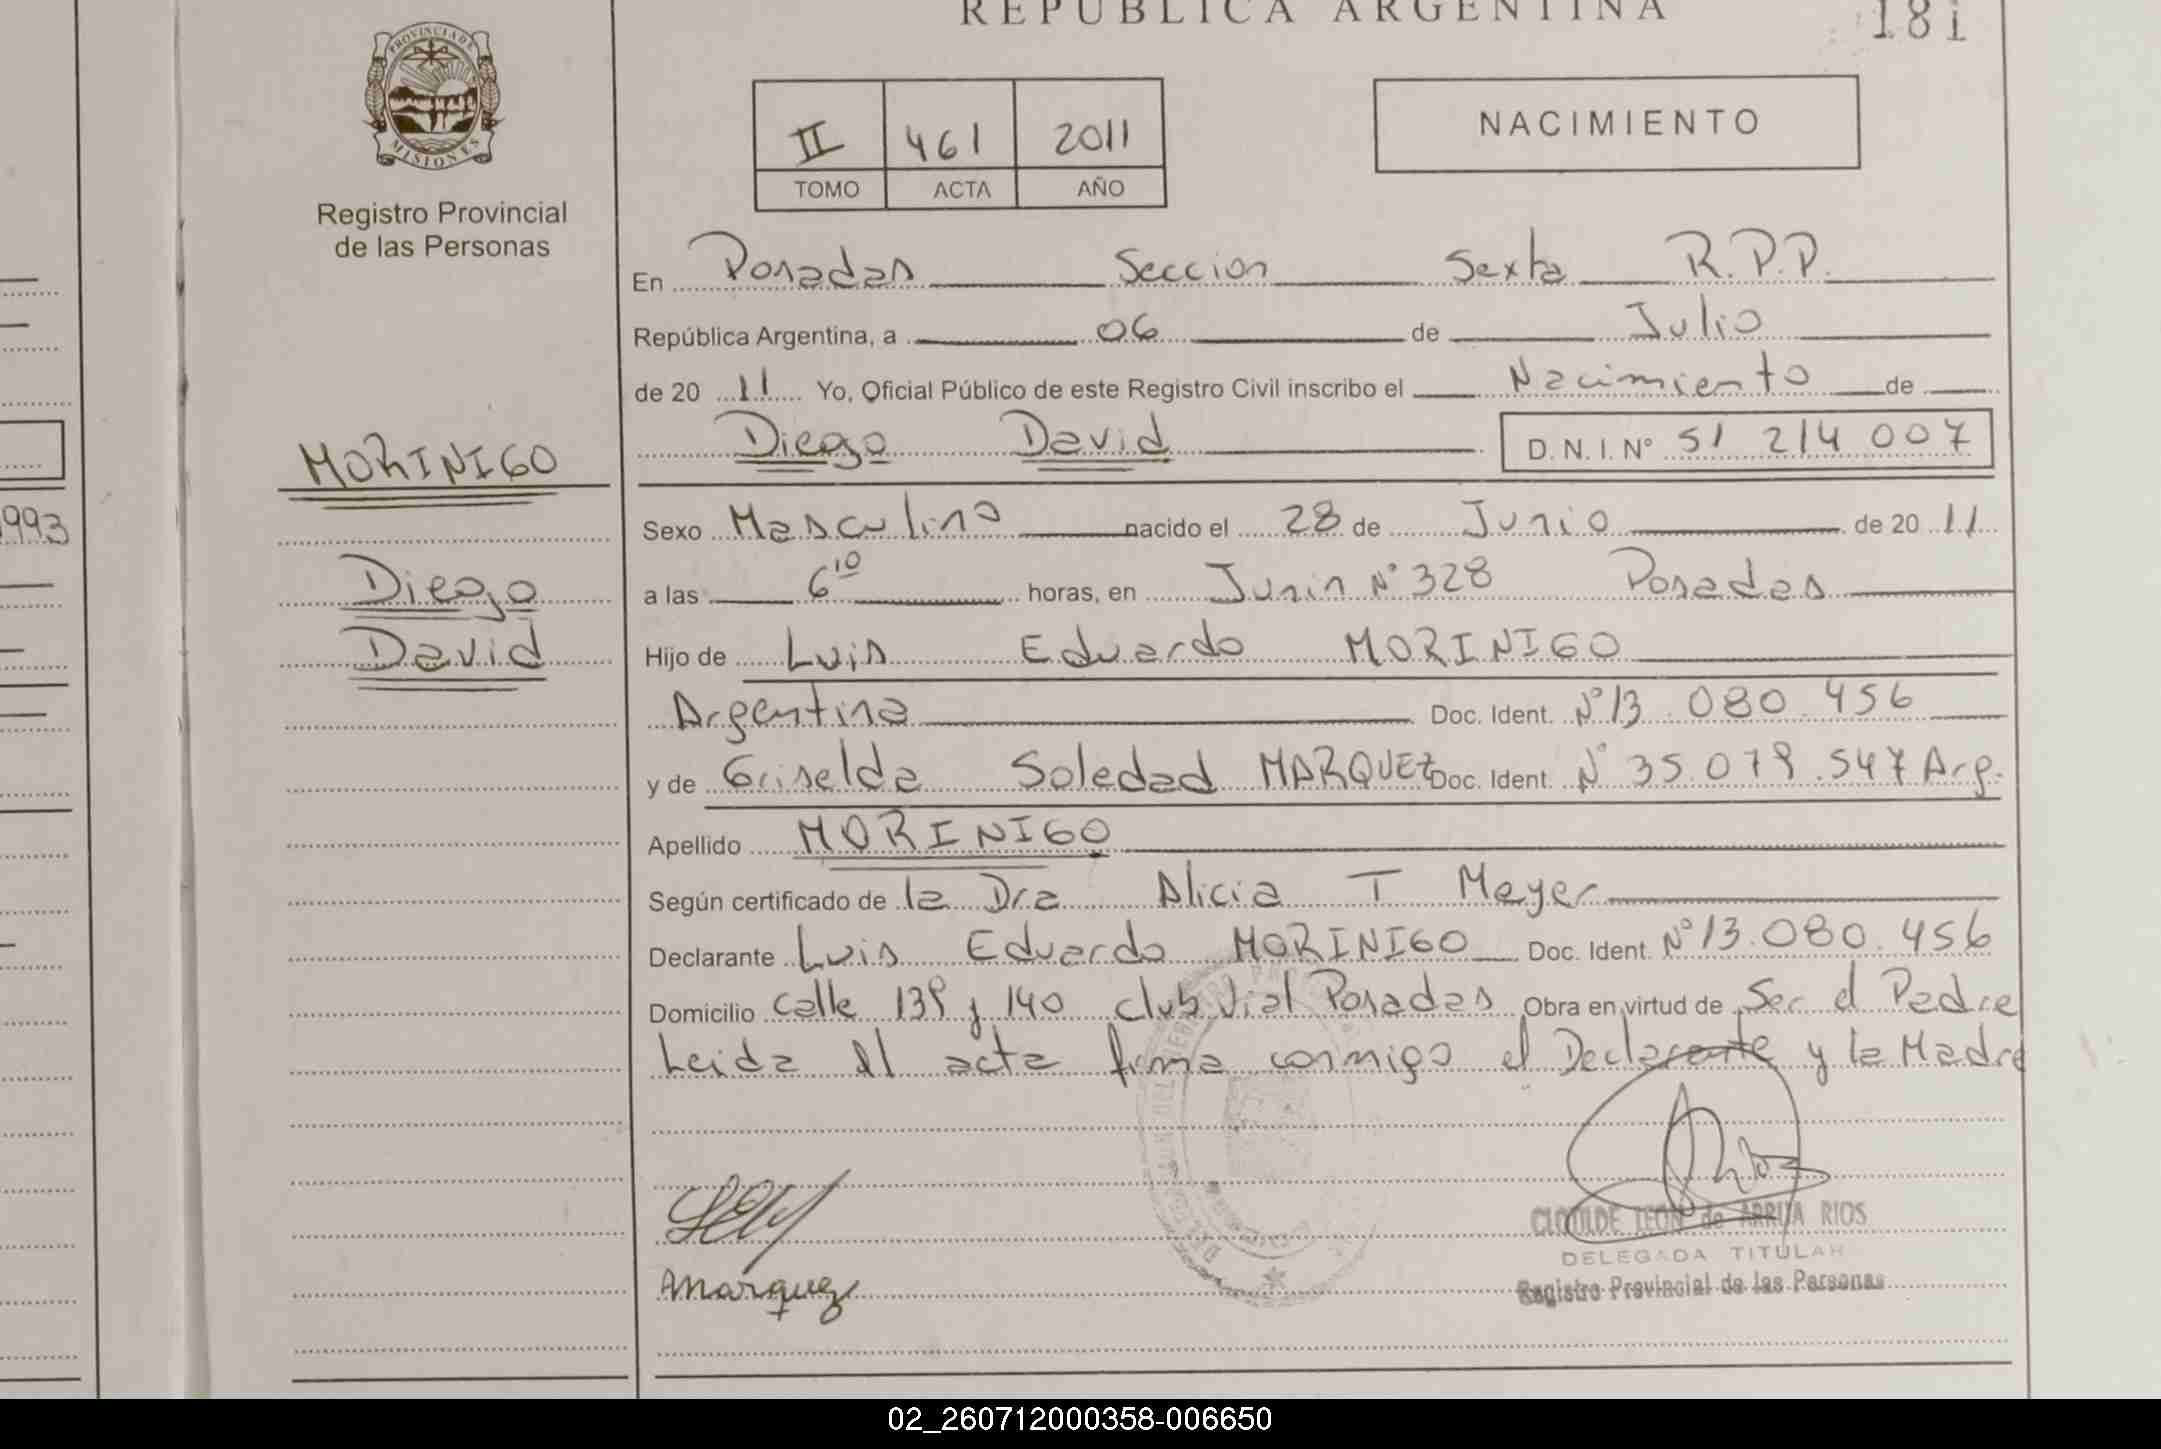 REPUBLICA ARGENTINA
181
PROVINCIA DE MISIONES
Registro Provincial
de las Personas
II 461 2011
TOMO ACTA AÑO
NACIMIENTO
En Posadas Seccion Sexta R.P.P.
República Argentina, a 06 de Julio
de 20 11 Yo, Oficial Público de este Registro Civil inscribo el Nacimiento de
Diego David D.N.I. Nº 51 214 007
MORINIGO
1993
Sexo Masculino nacido el 28 de Junio de 20 11
Diego
a las 6 10 horas, en Junin Nº 328 Posadas
David
Hijo de Luis Eduardo MORINIGO
Argentina Doc. Ident. Nº 13.080.456
y de Griselda Soledad MARQUEZ Doc. Ident. Nº 35.079.547 Arg.
Apellido MORINIGO
Según certificado de la Dra Alicia T Meyer
Declarante Luis Eduardo MORINIGO Doc. Ident. Nº 13.080.456
Domicilio calle 139 y 140 club Vial Posadas Obra en virtud de Ser el Padre
Leida el acta firma conmigo el Declarante y la Madre
CLOTILDE LEON de ARRUA RIOS
DELEGADA TITULAR
Registro Provincial de las Personas
Marquez
02_260712000358-006650